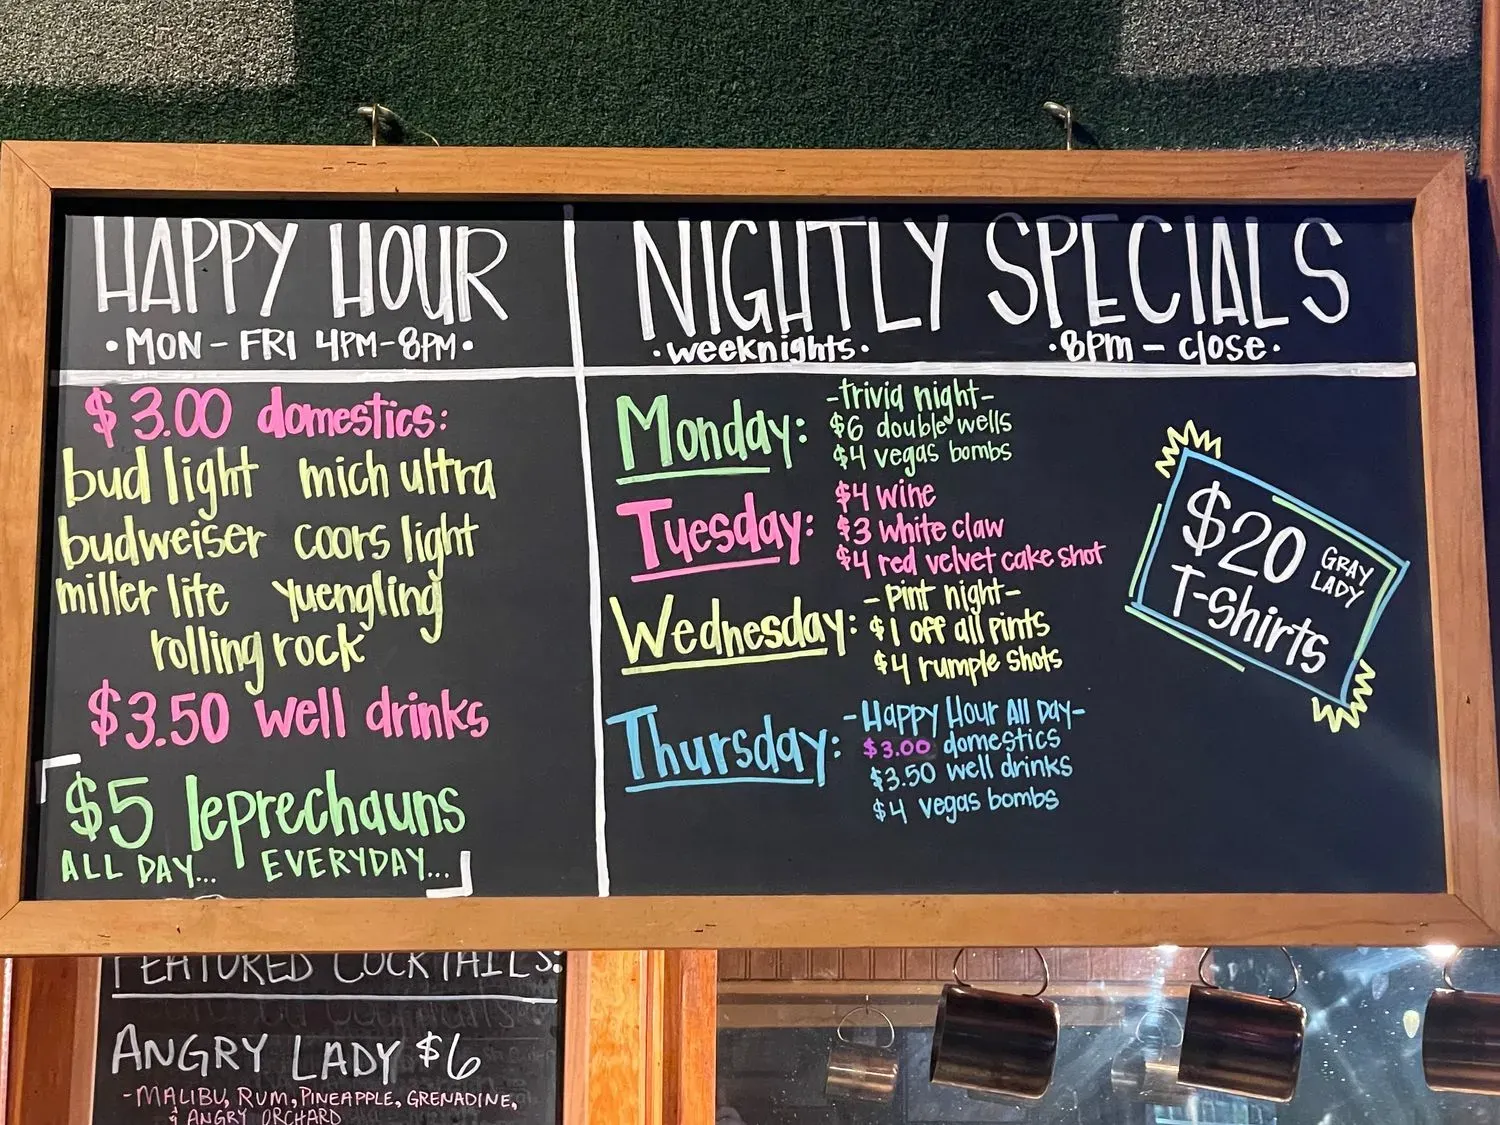 HAPPY HOUR
• MON - FRI 4PM-8PM •
$3.00 domestics:
bud light mich ultra
budweiser coors light
miller lite yuengling
rolling rock
$3.50 well drinks
$5 leprechauns
ALL DAY... EVERYDAY...
NIGHTLY SPECIALS
• weeknights • • 8pm - close •
Monday:
-trivia night-
$6 double wells
$4 vegas bombs
Tuesday:
$4 wine
$3 white claw
$4 red velvet cake shot
Wednesday:
- pint night -
$1 off all pints
$4 rumple shots
Thursday:
-Happy Hour All Day-
$3.00 domestics
$3.50 well drinks
$4 vegas bombs
$20 GRAY LADY
T-shirts
FEATURED COCKTAILS:
ANGRY LADY $6
- MALIBU, RUM, PINEAPPLE, GRENADINE,
& ANGRY ORCHARD